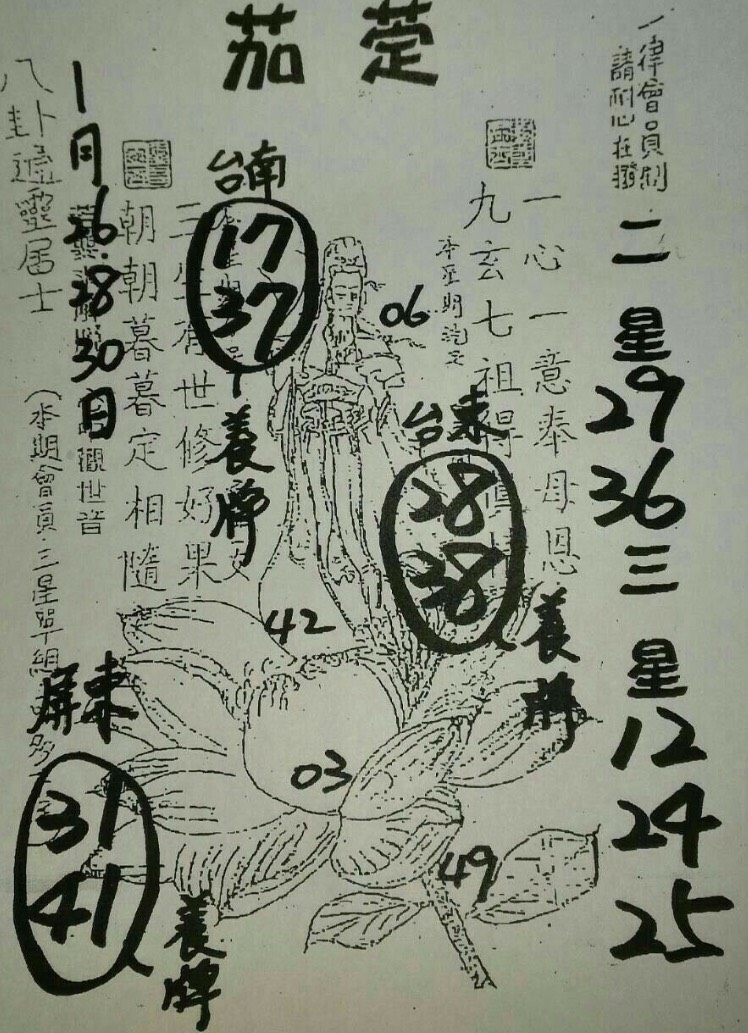 茄萣
一律會員制
請耐心在撥
二星
29
36
三星
12
24
25
一心一意奉母恩
九玄七祖得
06
台東
28
38
養牌
台南
17
37
養牌
世修好果
朝朝暮暮定相隨
1月26.28.30日
觀世音
八卦通靈居士
(本期會員三星單組
42
03
49
屏東
31
41
養牌